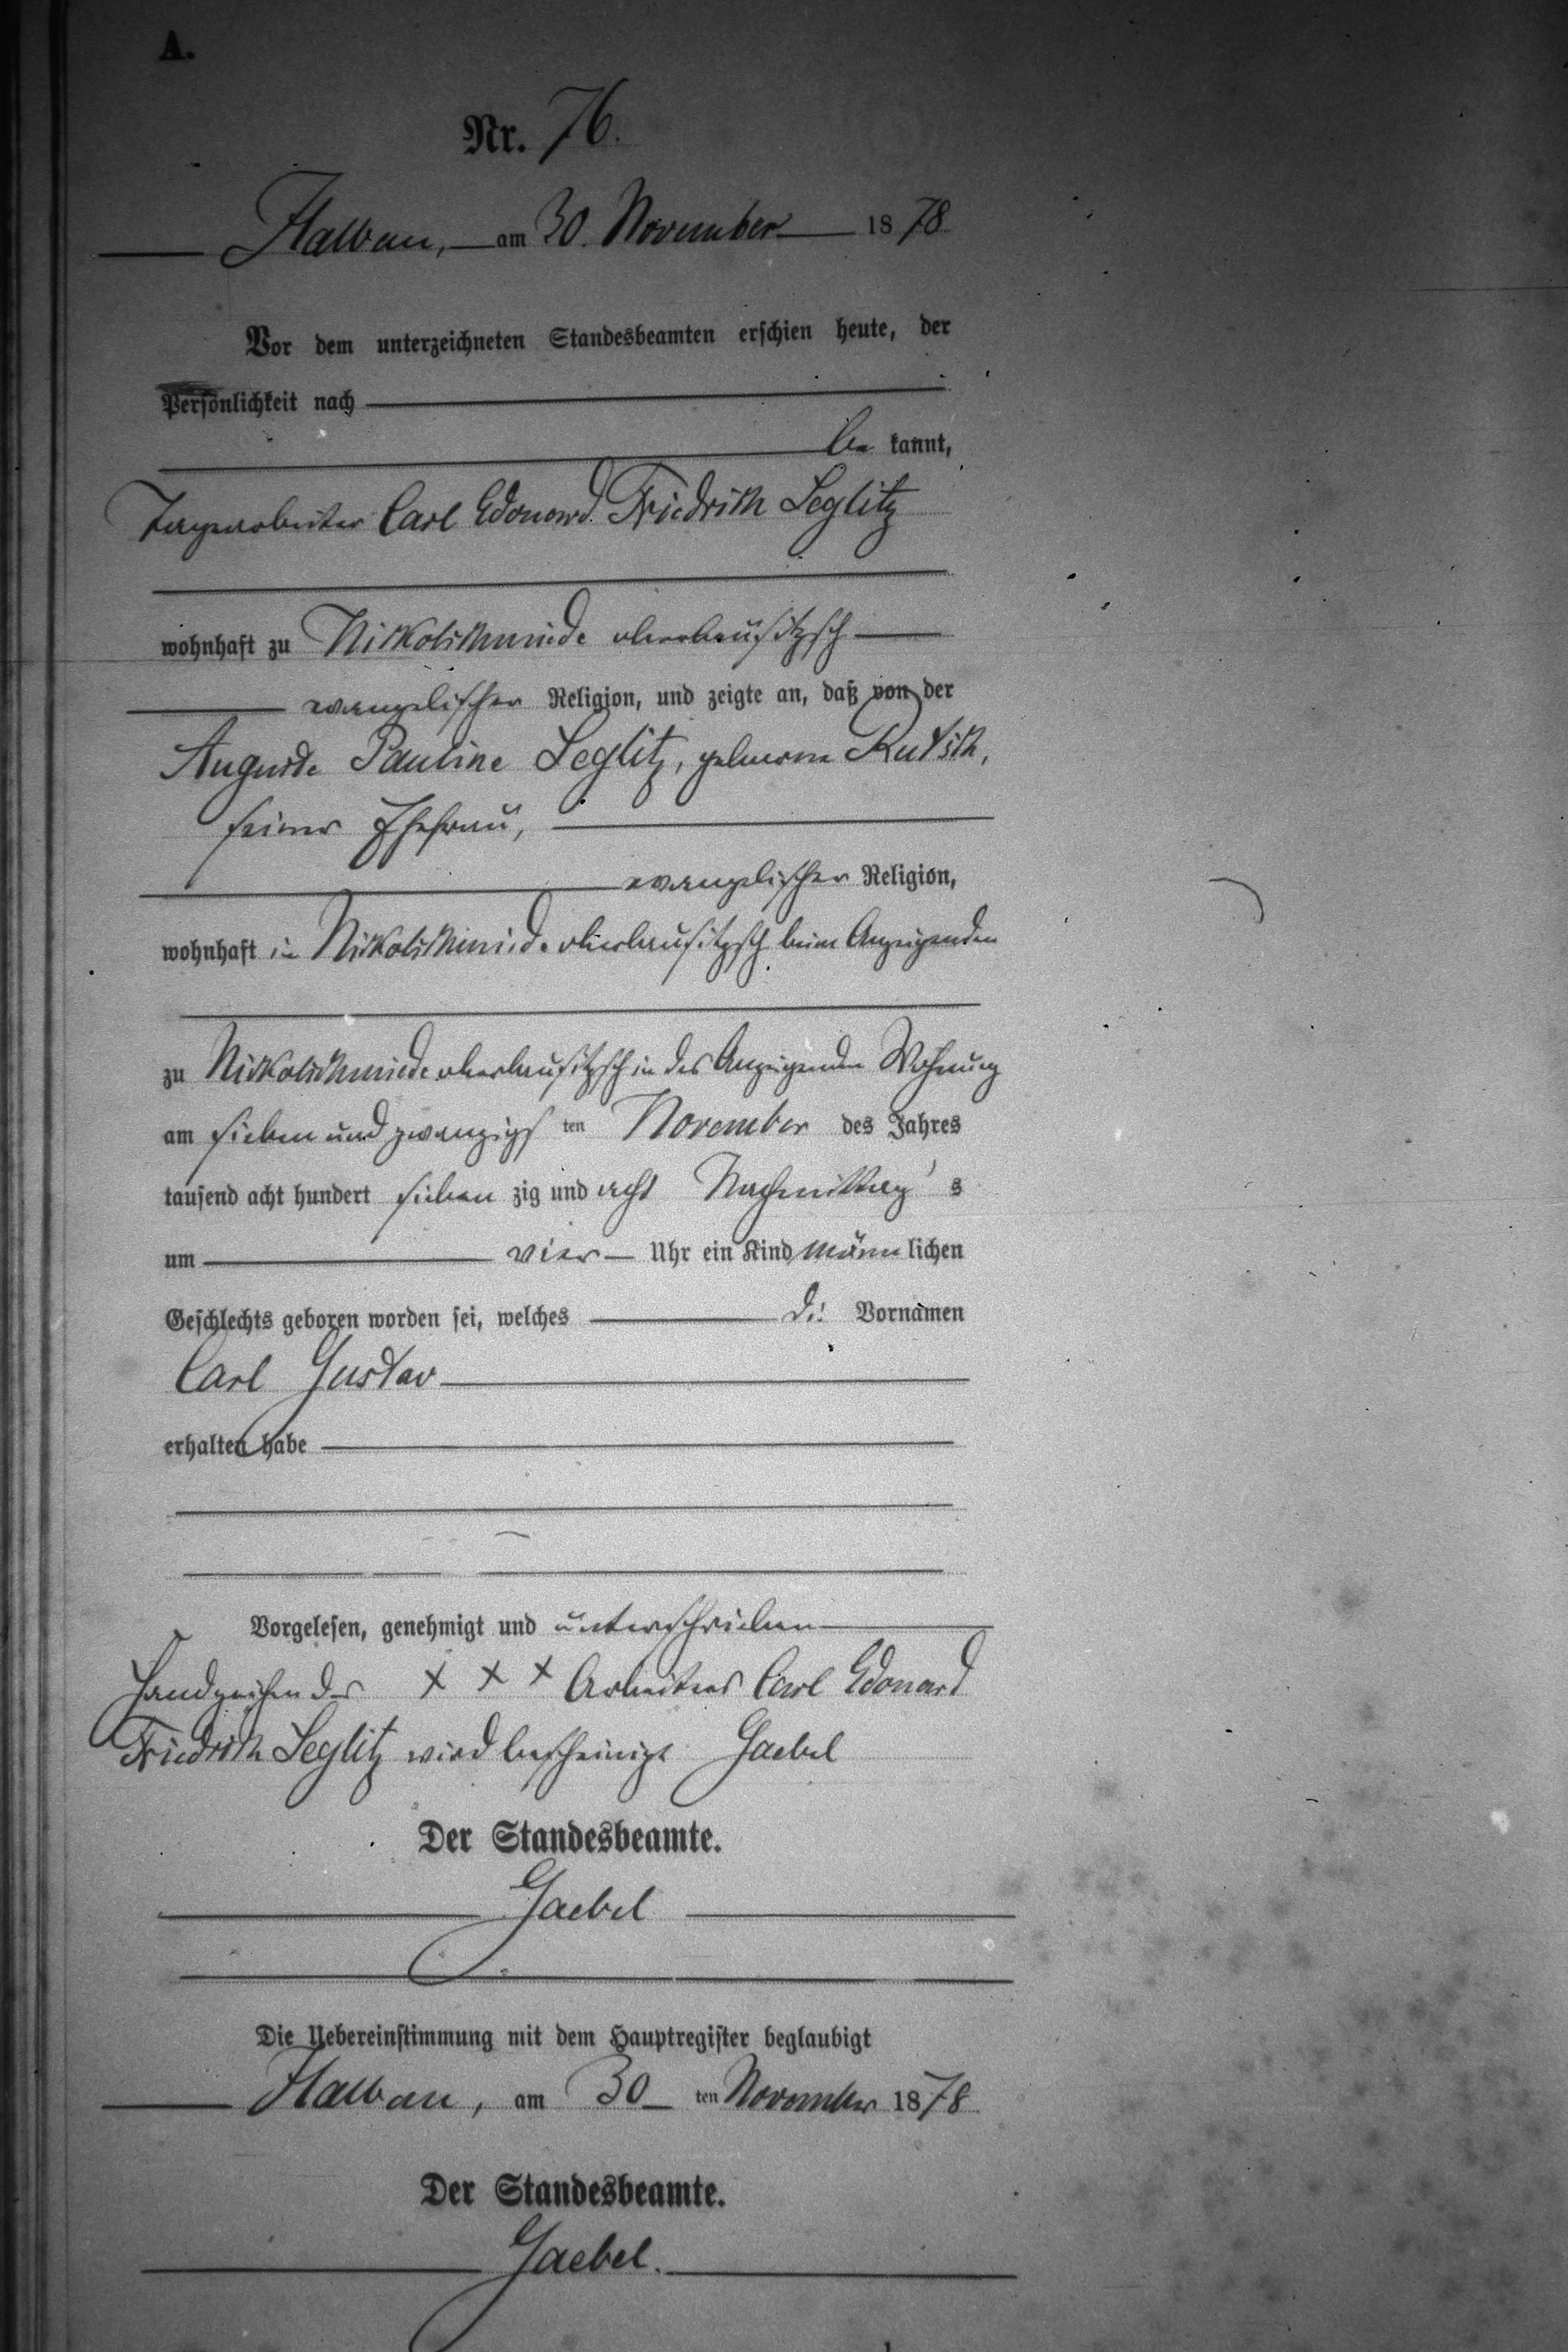 A.
Nr. 76.
Halbau, am 30. November 1878.
Vor dem unterzeichneten Standesbeamten erschien heute, der
Persönlichkeit nach
be kannt,
Tagearbeiter Carl Edouard Friedrich Seglitz
wohnhaft zu Nikolschmiede oberlausitzsch
evangelischer Religion, und zeigte an, daß von der
Auguste Pauline Seglitz, geborne
seiner Ehefrau,
evangelischer Religion,
wohnhaft in Nikolschmiede oberlausitzsch beim Anzeigenden
zu Nikolschmiede oberlausitzsch in des Anzeigenden Wohnung
am sieben und zwanzigs ten November des Jahres
tausend acht hundert sieben zig und acht Nachmittag s
um vier Uhr ein Kind männ lichen
Geschlechts geboren worden sei, welches die Vornamen
Carl Gustav
erhalten habe
Vorgelesen, genehmigt und unterschrieben
Handzeichen des + + + Arbeiters Carl Edouard
Friedrich Seglitz wird bescheinigt Gaebel
Der Standesbeamte.
Gaebel
Die Uebereinstimmung mit dem Hauptregister beglaubigt
Halbau, am 30 ten November 1878.
Der Standesbeamte.
Gaebel.